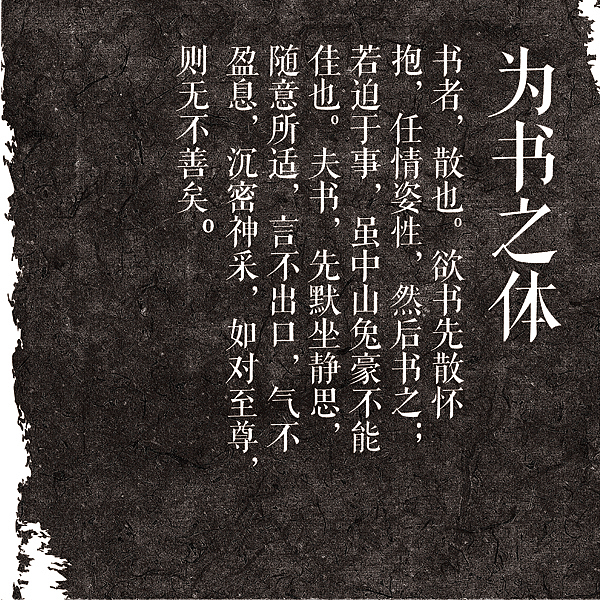 为书之体
书者，散也。欲书先散怀
抱，任情姿性，然后书之；
若迫于事，虽中山兔豪不能
佳也。夫书，先默坐静思，
随意所适，言不出口，气不
盈息，沉密神采，如对至尊，
则无不善矣。